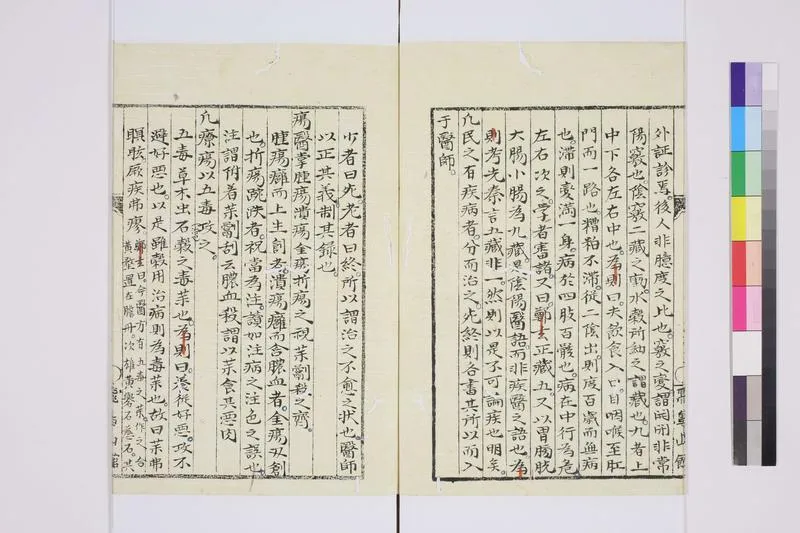 外証診焉後人非臆度之比也竅之変謂開閉非常
陽竅也陰竅二藏之病水穀所納之謂藏也九者上
中下各左右中也為則曰夫飲食入口自咽喉至肛
門而一路也糟粕不滞従二陰出則度百歳而無病
也滞則変満一身病於四肢百骸也病在中行為危
左右次之学者審諸又曰鄭玄正藏五又以胃膀胱
大腸小腸為九藏是陰陽醫語而非疾醫之語也為
則考先秦言五藏非一然則以是不可論疾也明矣
凡民之有疾病者分而治之死終則各書其所以而入
于醫師
少者曰死老者曰終所以謂治之不愈之状也醫師
以正其義制其録也
瘍醫掌腫瘍潰瘍金瘍折瘍之祝薬劀殺之齊
腫瘍癰而上生創者潰瘍癰而含膿血者金瘍刃創
也折瘍踠跌者祝當為注讀如注病之注色之誤也
注謂附着薬劀刮去膿血殺謂以薬食其悪肉
凡療瘍以五毒攻之
五毒草木虫石穀之毒薬也為則曰湊従好悪攻不
避好悪也以是雖穀用治病則為毒薬也故曰薬弗
瞑眩厥疾弗瘳 鄭玄曰今醫方有五毒之薬作之合
黄堥置石膽丹次雄黄礜石慈石其